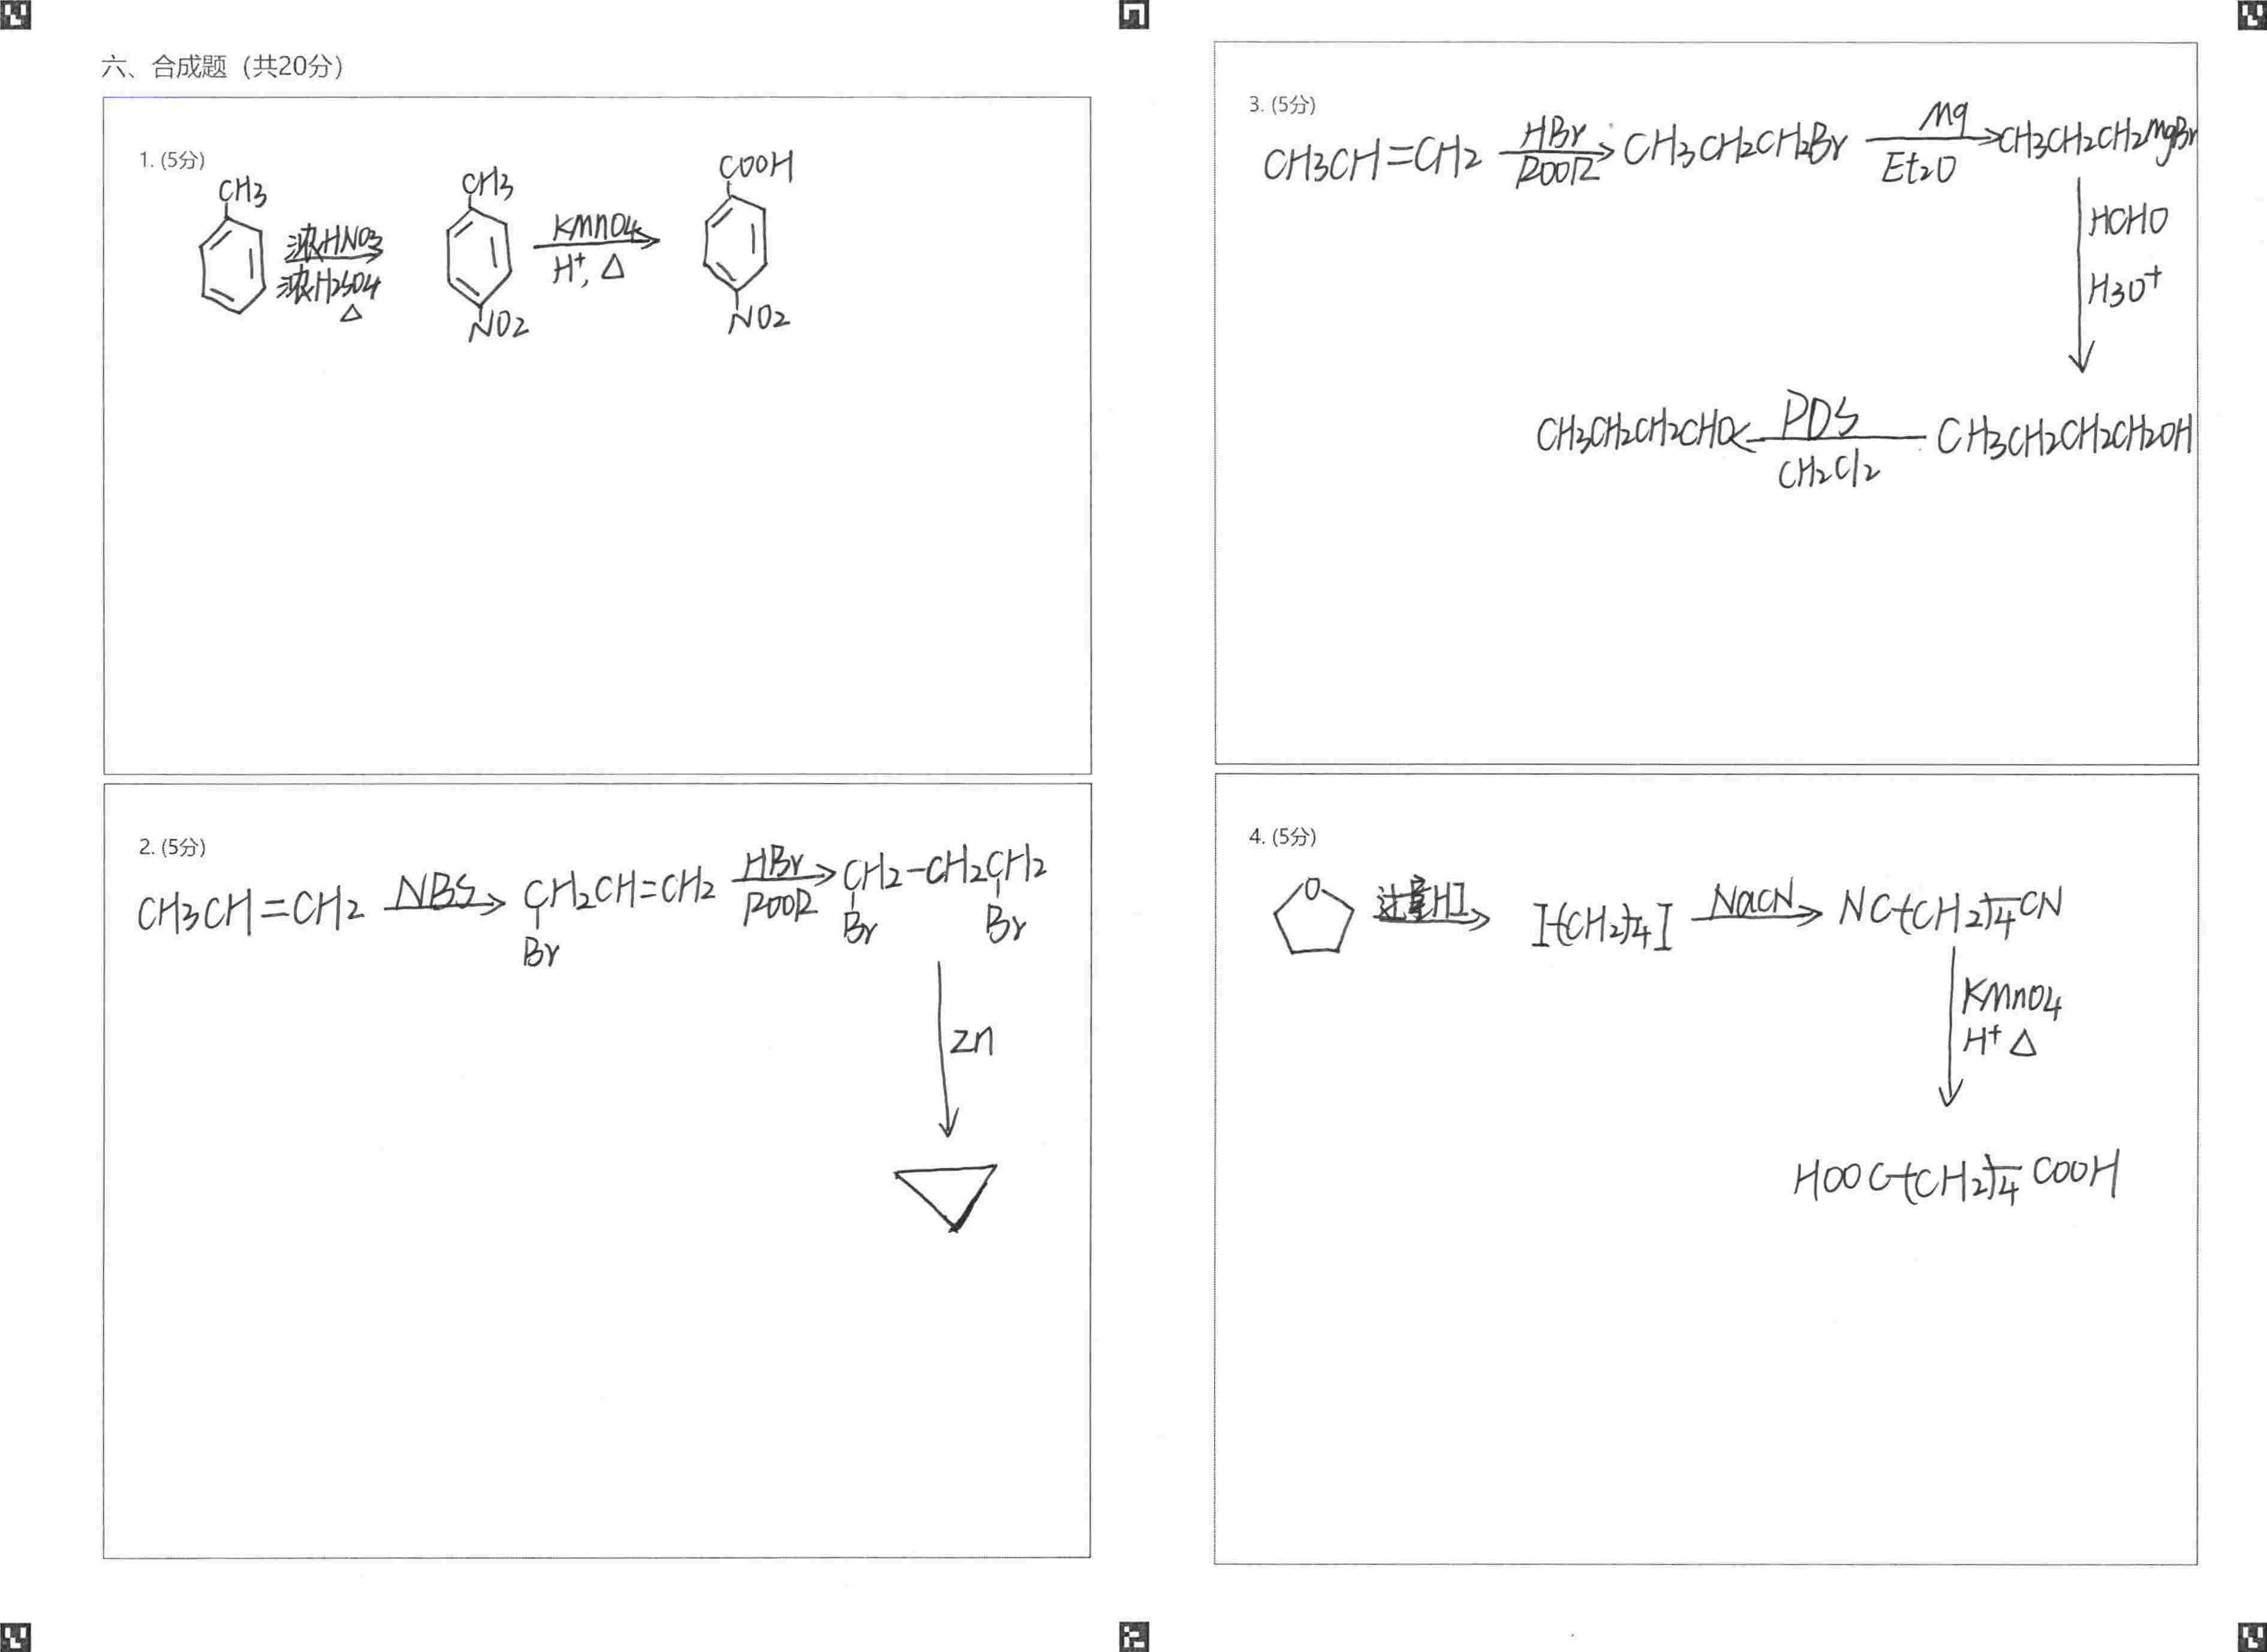 六、合成题（共20分）
1. (5分)
CH3 浓HNO3 浓H2SO4 △ CH3 NO2 KMnO4 H+, △ COOH NO2
2. (5分)
CH3CH=CH2 NBS CH2CH=CH2 Br HBr ROOR CH2-CH2CH2 Br Br
Zn
3. (5分)
CH3CH=CH2 HBr ROOR CH3CH2CH2Br Mg Et2O CH3CH2CH2MgBr
HCHO
H3O+
CH3CH2CH2CHO PDS CH2Cl2 CH3CH2CH2CH2OH
4. (5分)
O 过量HI I(CH2)4I NaCN NC(CH2)4CN
KMnO4
H+ △
HOOC(CH2)4COOH